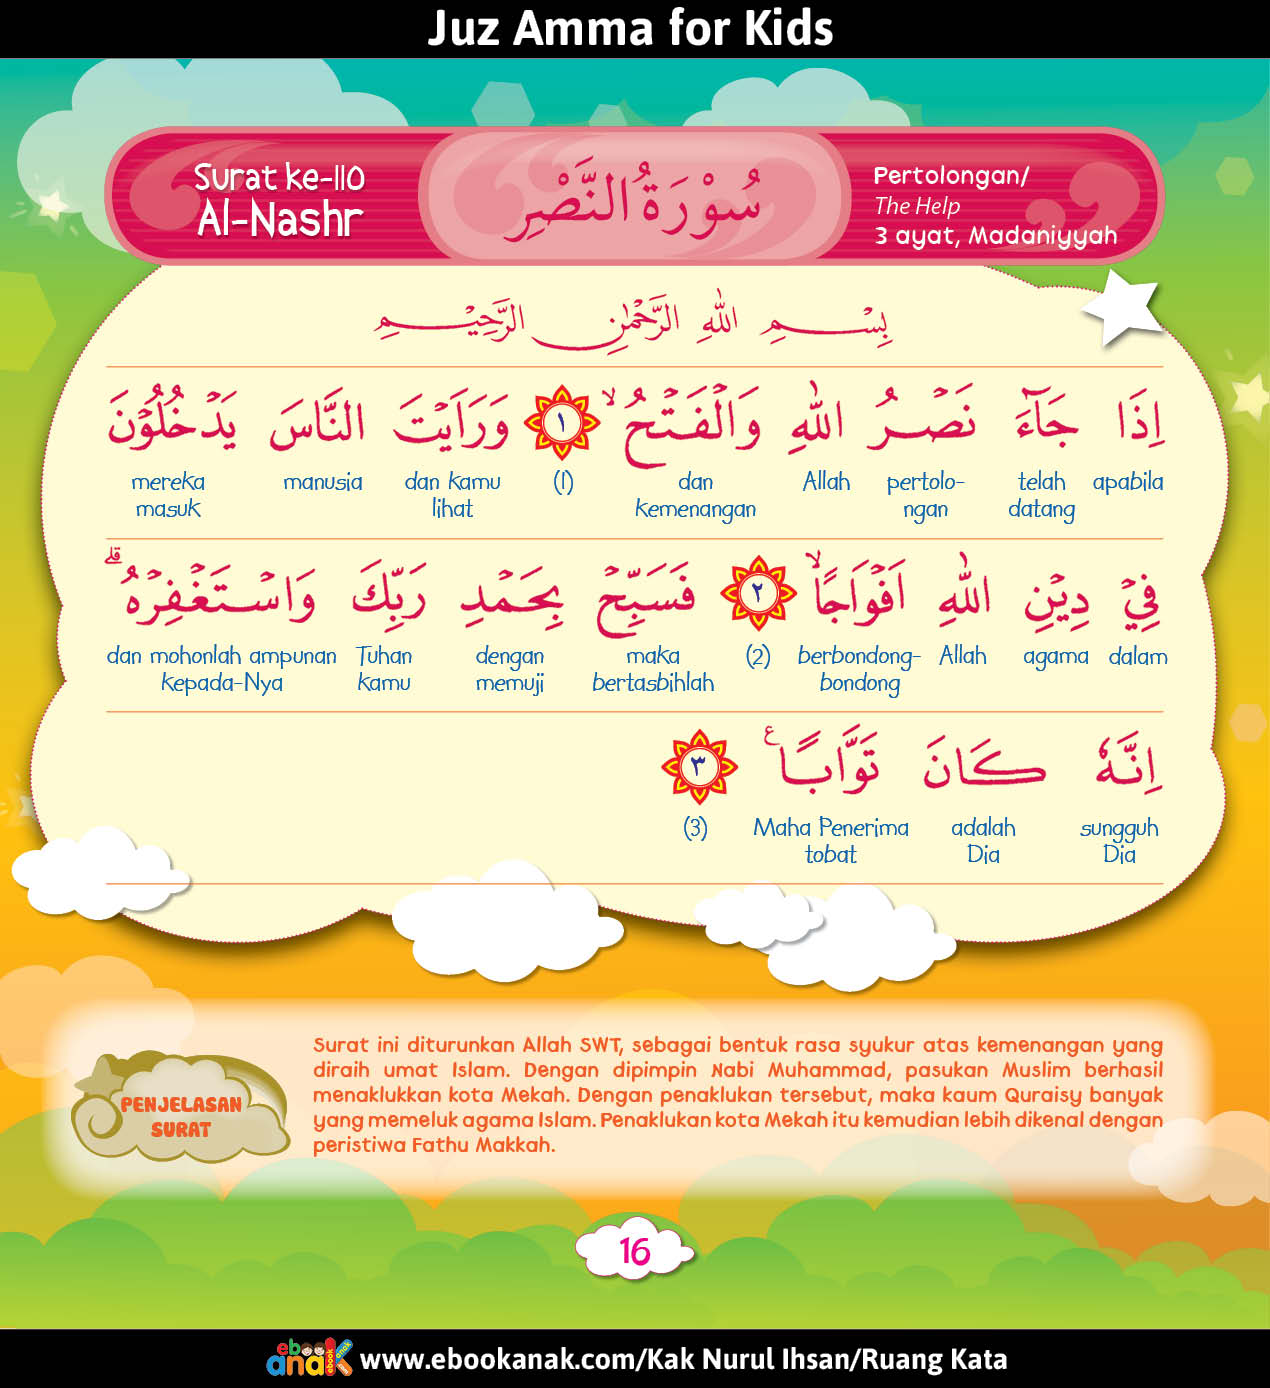 Juz Amma for Kids
Surat ke-110
Al-Nashr
سُوْرَةُ النَّصْرِ
Pertolongan/
The Help
3 ayat, Madaniyyah
بِسْمِ اللّٰهِ الرَّحْمٰنِ الرَّحِيْمِ
اِذَا جَاۤءَ نَصْرُ اللّٰهِ وَالْفَتْحُۙ ١ وَرَاَيْتَ النَّاسَ يَدْخُلُوْنَ
apabila telah datang pertolo-ngan Allah dan kemenangan (1) dan kamu lihat manusia mereka masuk
فِيْ دِيْنِ اللّٰهِ اَفْوَاجًاۙ ٢ فَسَبِّحْ بِحَمْدِ رَبِّكَ وَاسْتَغْفِرْهُۗ
dalam agama Allah berbondong-bondong (2) maka bertasbihlah dengan memuji Tuhan kamu dan mohonlah ampunan kepada-Nya
اِنَّهٗ كَانَ تَوَّابًا ࣖ ٣
sungguh Dia adalah Dia Maha Penerima tobat (3)
PENJELASAN
SURAT
Surat ini diturunkan Allah SWT, sebagai bentuk rasa syukur atas kemenangan yang
diraih umat Islam. Dengan dipimpin Nabi Muhammad, pasukan Muslim berhasil
menaklukkan kota Mekah. Dengan penaklukan tersebut, maka kaum Quraisy banyak
yang memeluk agama Islam. Penaklukan kota Mekah itu kemudian lebih dikenal dengan
peristiwa Fathu Makkah.
16
ebook anak www.ebookanak.com/Kak Nurul Ihsan/Ruang Kata